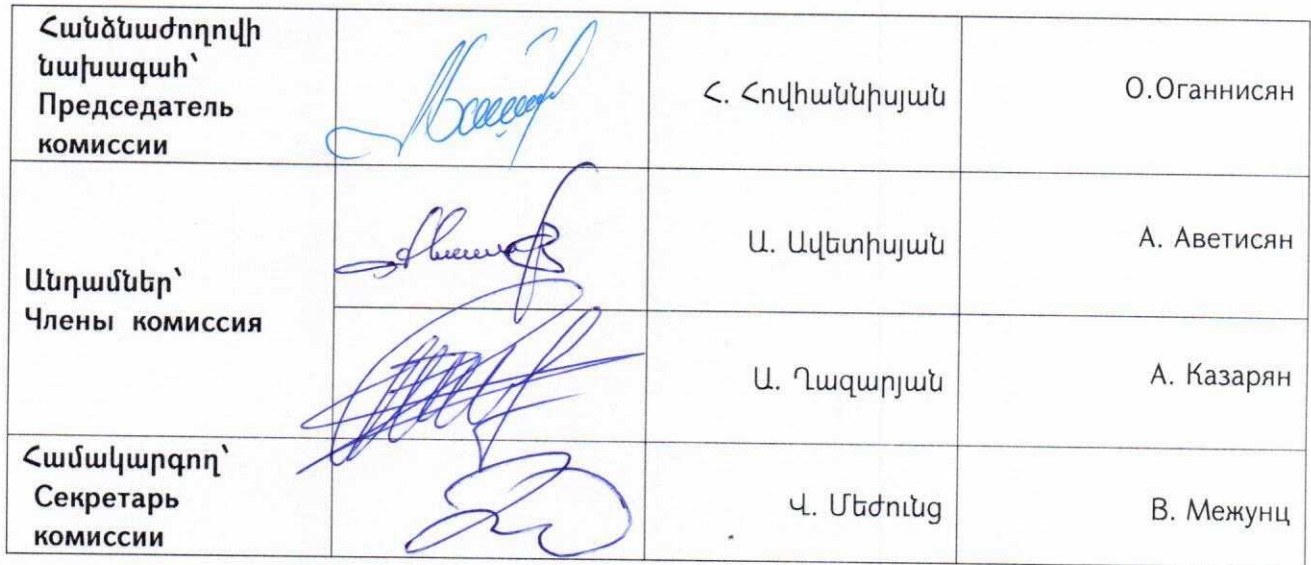 Հանձնաժողովի
նախագահ՝
Председатель
комиссии
Հ. Հովհաննիսյան
О.Оганнисян
Անդամներ՝
Члены комиссия
Ա. Ավետիսյան
А. Аветисян
Ա. Ղազարյան
А. Казарян
Համակարգող՝
Секретарь
комиссии
Վ. Մեժունց
В. Межунц